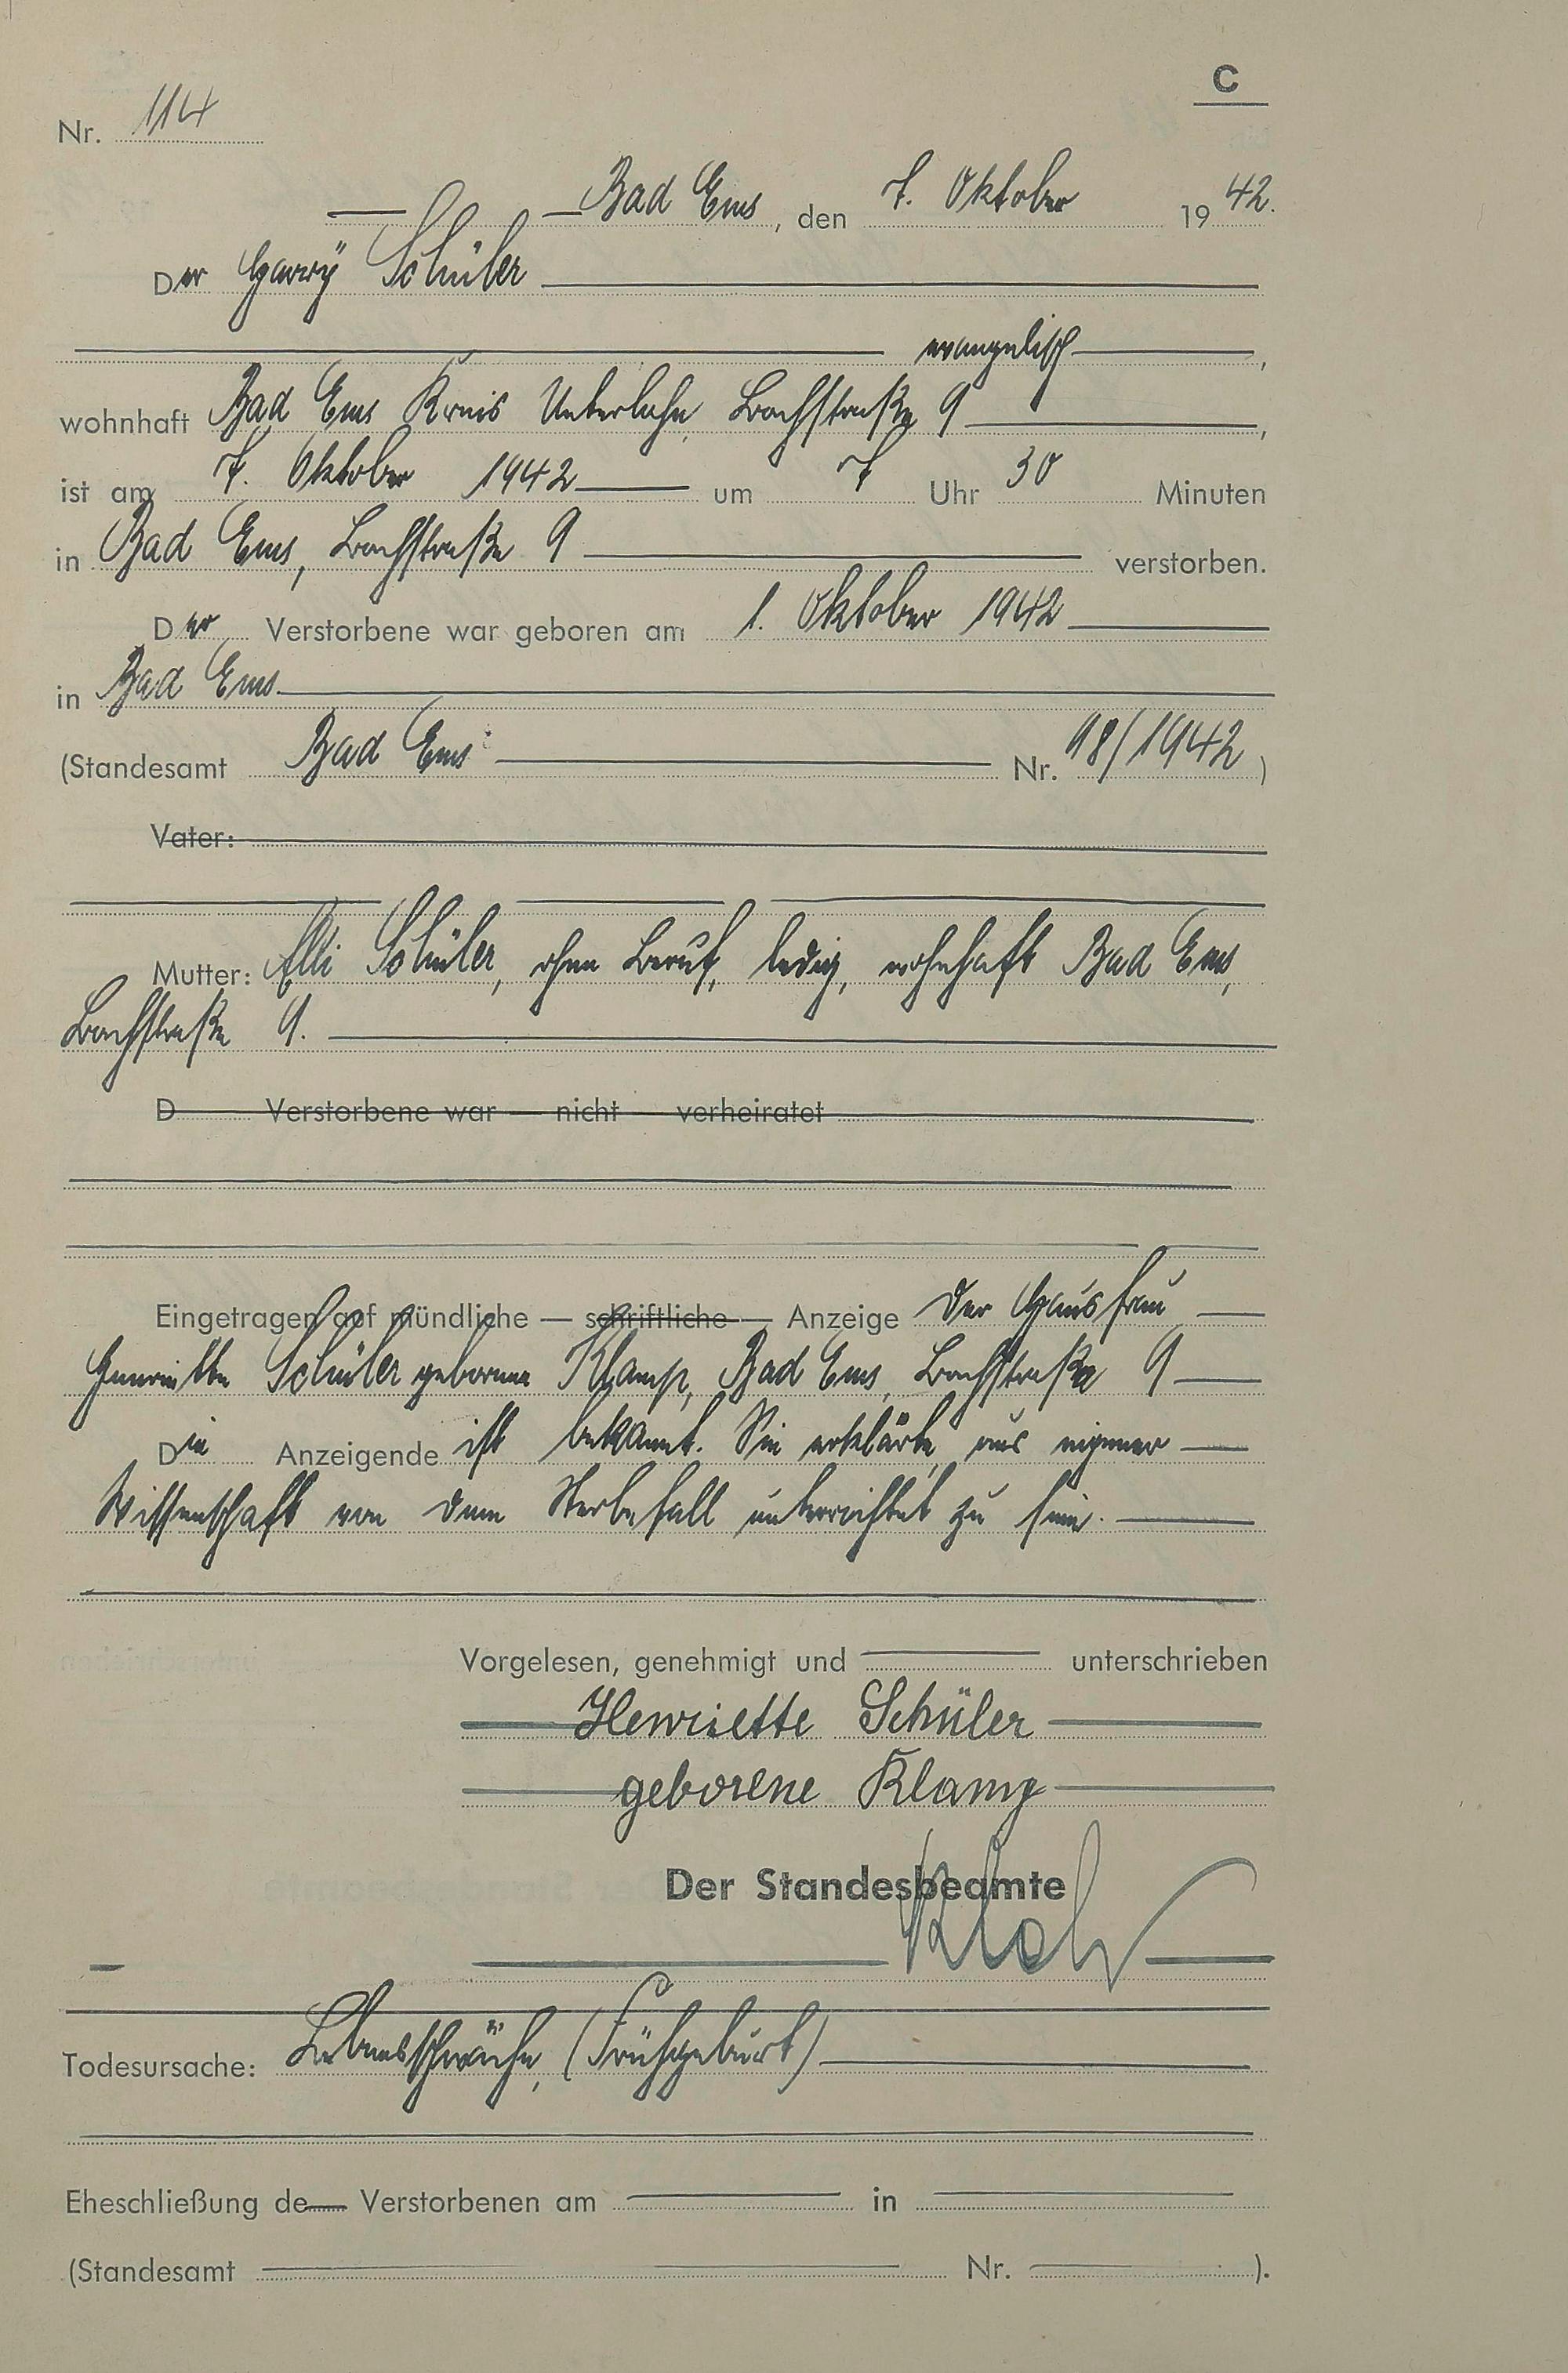 C
Nr. 114
Bad Ems, den 7. Oktober 1942.
Der Harry Schüler
evangelisch,
wohnhaft Bad Ems Kreis Unterlahn, Bachstraße 9,
ist am 7. Oktober 1942 um 7 Uhr 30 Minuten
in Bad Ems, Bachstraße 9 verstorben.
Der Verstorbene war geboren am 1. Oktober 1942
in Bad Ems
(Standesamt Bad Ems Nr. 98/1942)
Vater:
Mutter: Elli Schüler, ohne Beruf, ledig, wohnhaft Bad Ems,
Bachstraße 9.
D Verstorbene war — nicht — verheiratet
Eingetragen auf mündliche — schriftliche — Anzeige der Hausfrau
Henriette Schüler geborene Klamp, Bad Ems, Bachstraße 9
Die Anzeigende ist bekannt. Sie erklärte, aus eigener
Wissenschaft von dem Sterbefall unterrichtet zu sein.
Vorgelesen, genehmigt und unterschrieben
Henriette Schüler
geborene Klamp
Der Standesbeamte
Todesursache: Lebensschwäche, (Frühgeburt)
Eheschließung de Verstorbenen am in
(Standesamt Nr. ).